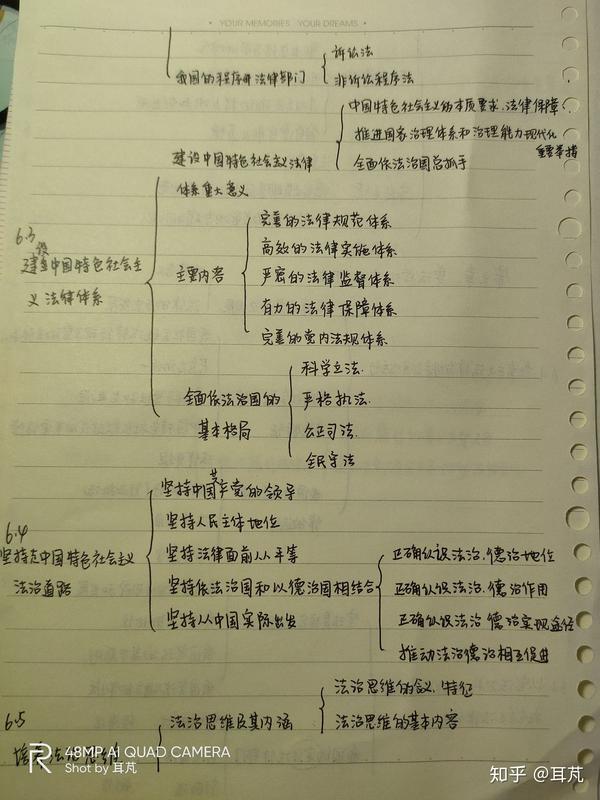 YOUR MEMORIES YOUR DREAMS
诉讼法
我国的程序性法律部门
非诉讼程序法
中国特色社会主义的本质要求、法律保障
推进国家治理体系和治理能力现代化
重要举措
建设中国特色社会主义法律
全面依法治国总抓手
体系重大意义
完善的法律规范体系
6.3
高效的法律实施体系
建设中国特色社会主
主要内容
严密的法律监督体系
义法律体系
有力的法律保障体系
完善的党内法规体系
科学立法.
全面依法治国的
严格执法.
基本格局
公正司法.
全民守法
坚持中国共产党的领导
6.4
坚持人民主体地位
坚持走中国特色社会主义
坚持法律面前人人平等
正确认识法治、德治地位
法治道路
坚持依法治国和以德治国相结合
正确认识法治、德治作用
坚持从中国实际出发
正确认识法治德治实现途径
推动法治德治相互促进
法治思维的含义、特征
6.5
法治思维及其内涵
法治思维的基本内容
48MP AI QUAD CAMERA
Shot by 耳芃
知乎 @耳芃